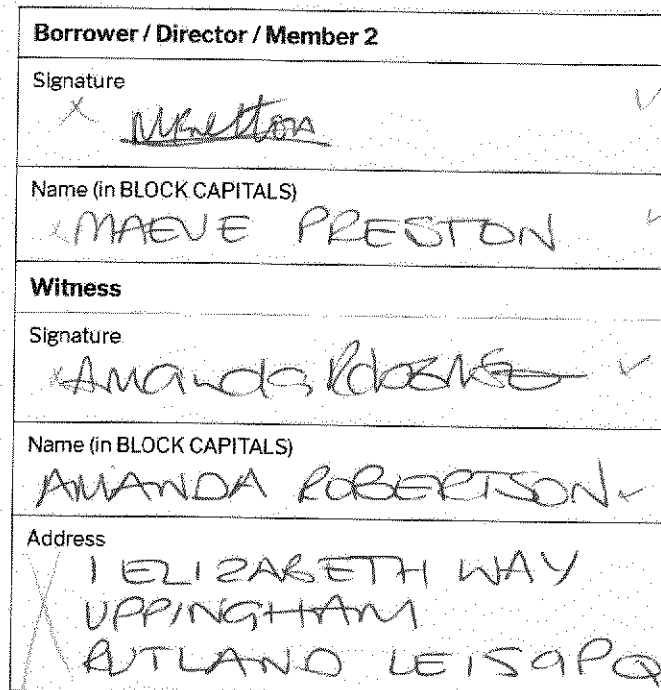 Borrower / Director / Member 2
Signature
MPreston
Name (in BLOCK CAPITALS)
MAEVE PRESTON
Witness
Signature
Amanda Robertson
Name (in BLOCK CAPITALS)
AMANDA ROBERTSON
Address
1 ELIZABETH WAY
UPPINGHAM
RUTLAND LE15 9PQ